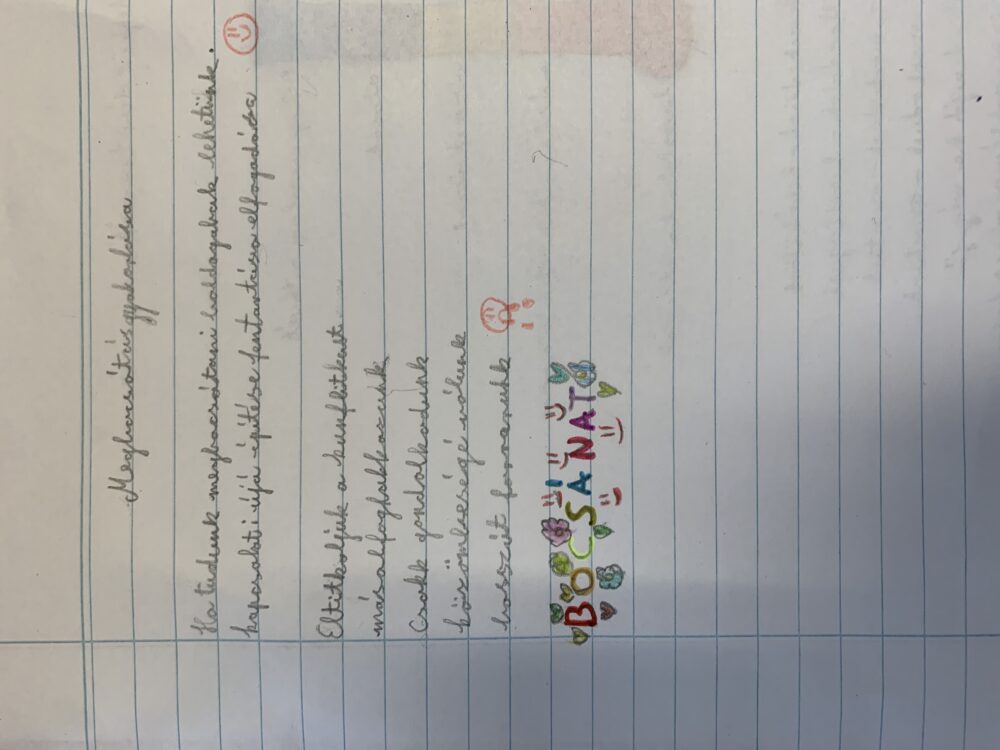 Megbocsátás gyakorlása
Ha tudunk megbocsátani boldogabak lehetünk.
kapcsolat újjá építése fentartása elfogadása
Eltitkoljuk a kunfliktust
mással foglalkozunk
Csakk gondolkodunk
közömbösségé válunk
bosszút forralunk
BOCSÁNAT